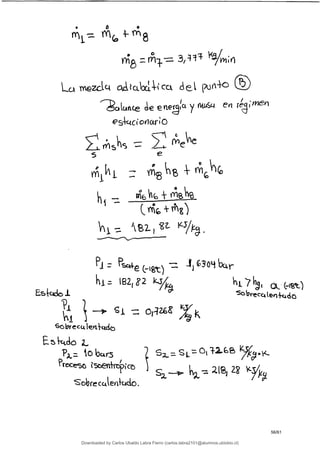 ṁ₁ = ṁ₆ + ṁ₈
ṁ₈ = ṁ₇ = 3,777 kg/min
La mezcla adiabática del punto ⑧
Balance de energía y masa en régimen
estacionario
∑ ṁshs = ∑ ṁehe
s e
ṁ₁h₁ = ṁ₈h₈ + ṁ₆h₆
h₁ = ṁ₆h₆ + ṁ₈h₈ / (ṁ₆ + ṁ₈)
h₁ = 182,82 KJ/kg.
P₁ = Psate (-18℃) = 1,6304 bar
h₁ = 182,82 KJ/kg
h₁ > hg, a (-18℃)
Sobrecalentado
Estado 1
P₁
h₁ } → S₁ = 0,7268 KJ/kg K
Sobrecalentado
Estado 2
P₂ = 10 bars
Proceso isoentrópico } S₂ = S₁ = 0,7268 KJ/kg·K
S₂ → h₂ = 218,28 KJ/kg
Sobrecalentado.
56/61
Downloaded by Carlos Ubaldo Labra Fierro (carlos.labra2101@alumnos.ubiobio.cl)